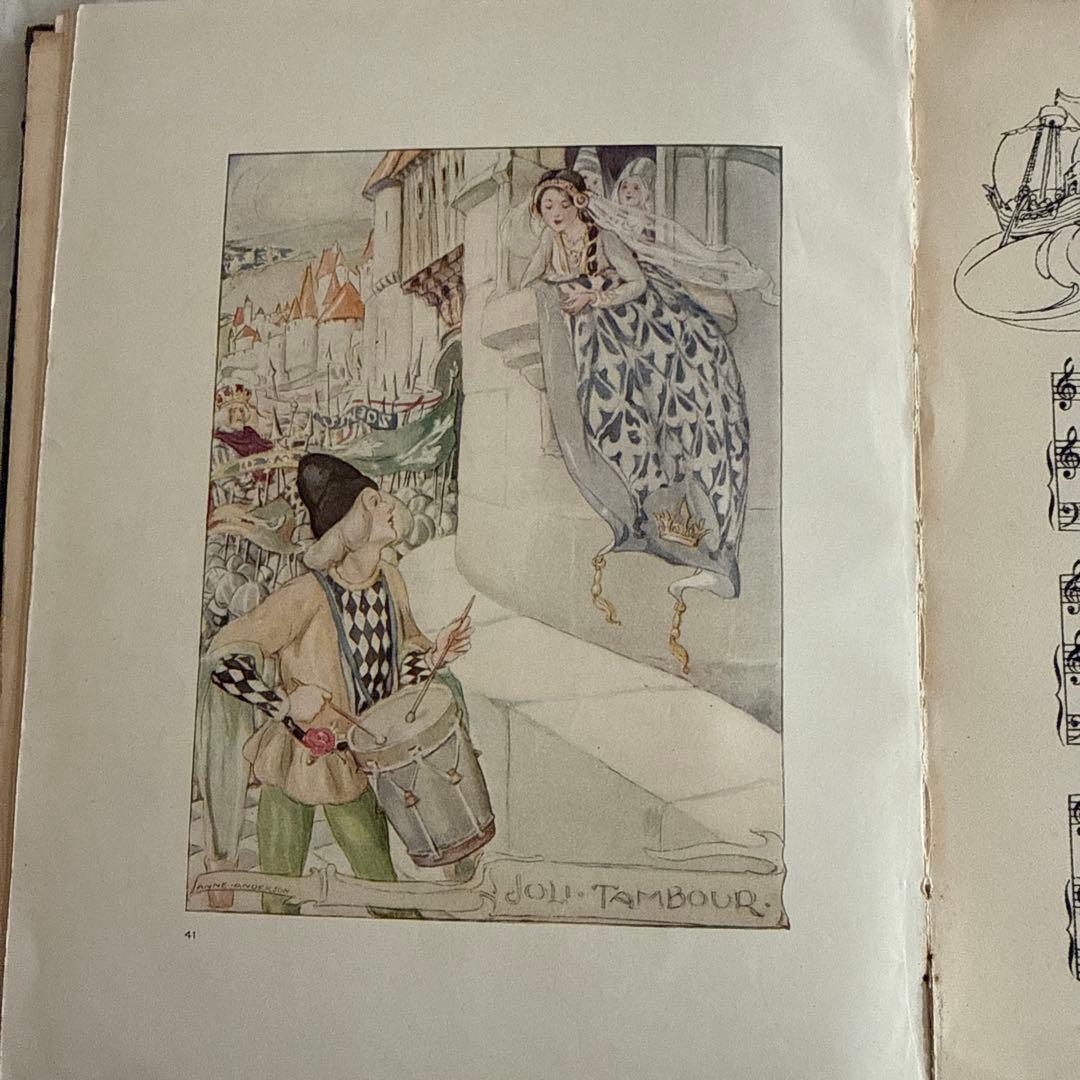 ANNE·ANDERSON
JOLI·TAMBOUR·
41